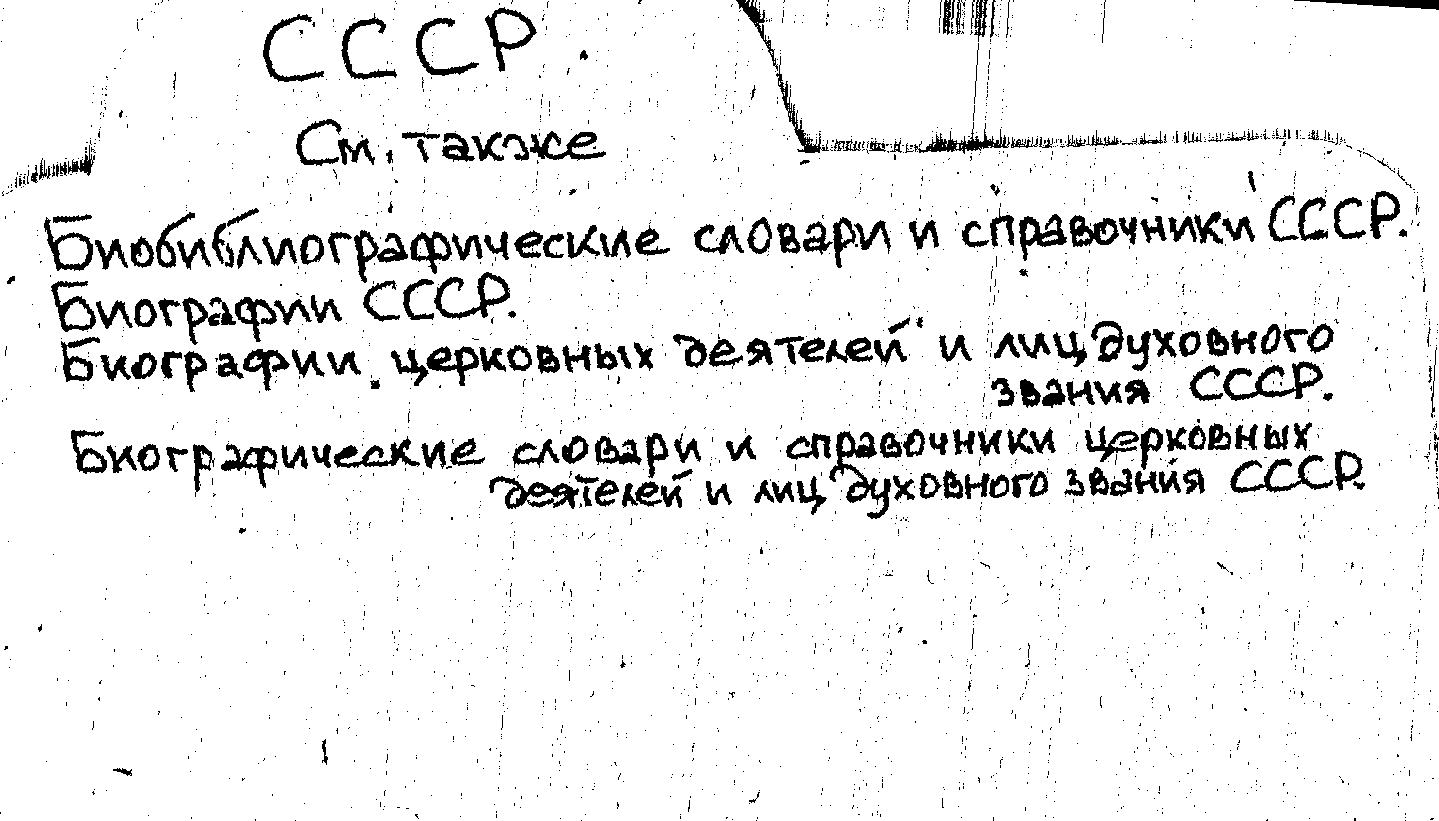 СССР.
См. также
Биобиблиографические словари и справочники СССР.
Биографии СССР.
Биографии церковных деятелей и лиц духовного
звания СССР.
Биографические словари и справочники церковных
деятелей и лиц духовного звания СССР.